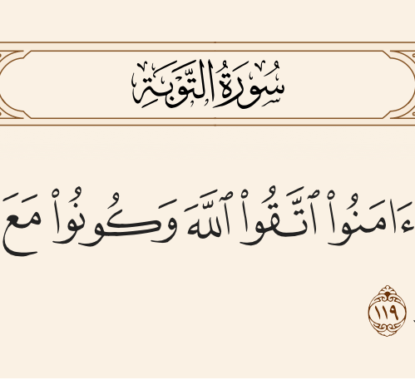 سُورَةُ التَّوْبَةِ
ءَامَنُوا۟ ٱتَّقُوا۟ ٱللَّهَ وَكُونُوا۟ مَعَ
١١٩